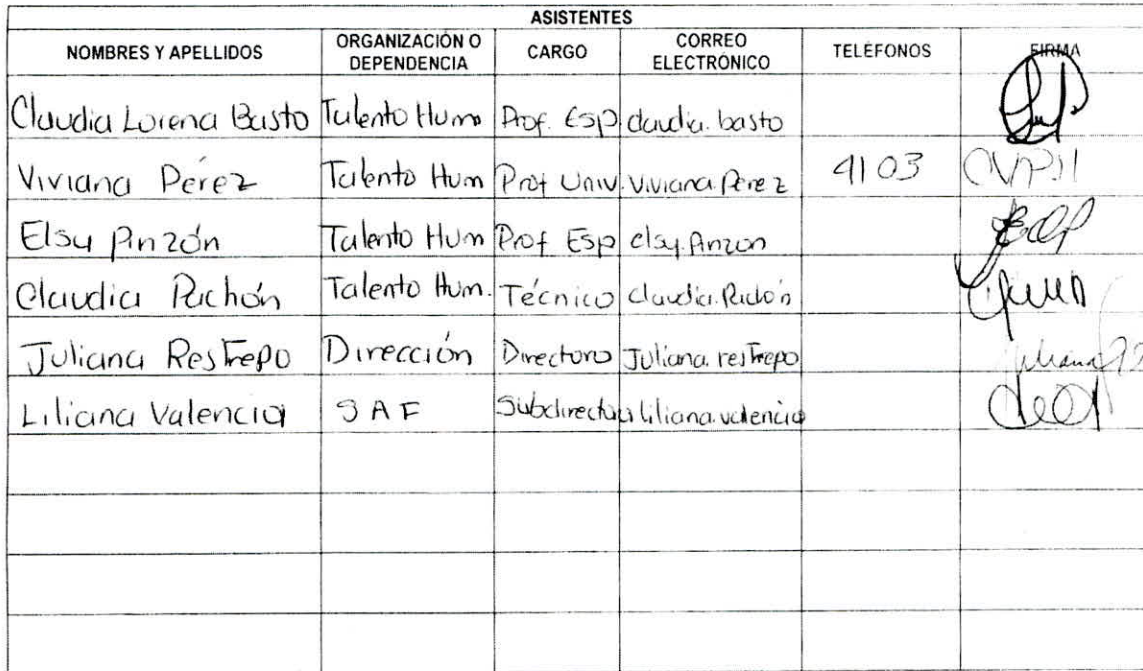 ASISTENTES
NOMBRES Y APELLIDOS ORGANIZACIÓN O DEPENDENCIA CARGO CORREO ELECTRÓNICO TELÉFONOS FIRMA
Claudia Lorena Basto Talento Hum Prof. Esp claudia.basto
Viviana Pérez Talento Hum Prof Univ. Viviana.Perez 4103
Elsy Pinzón Talento Hum Prof Esp elsy.Pinzon
Claudia Pachón Talento Hum. Técnico Claudia.Pachón
Juliana Restrepo Dirección Directora Juliana.restrepo
Liliana Valencia SAF Subdirectora liliana.valencia